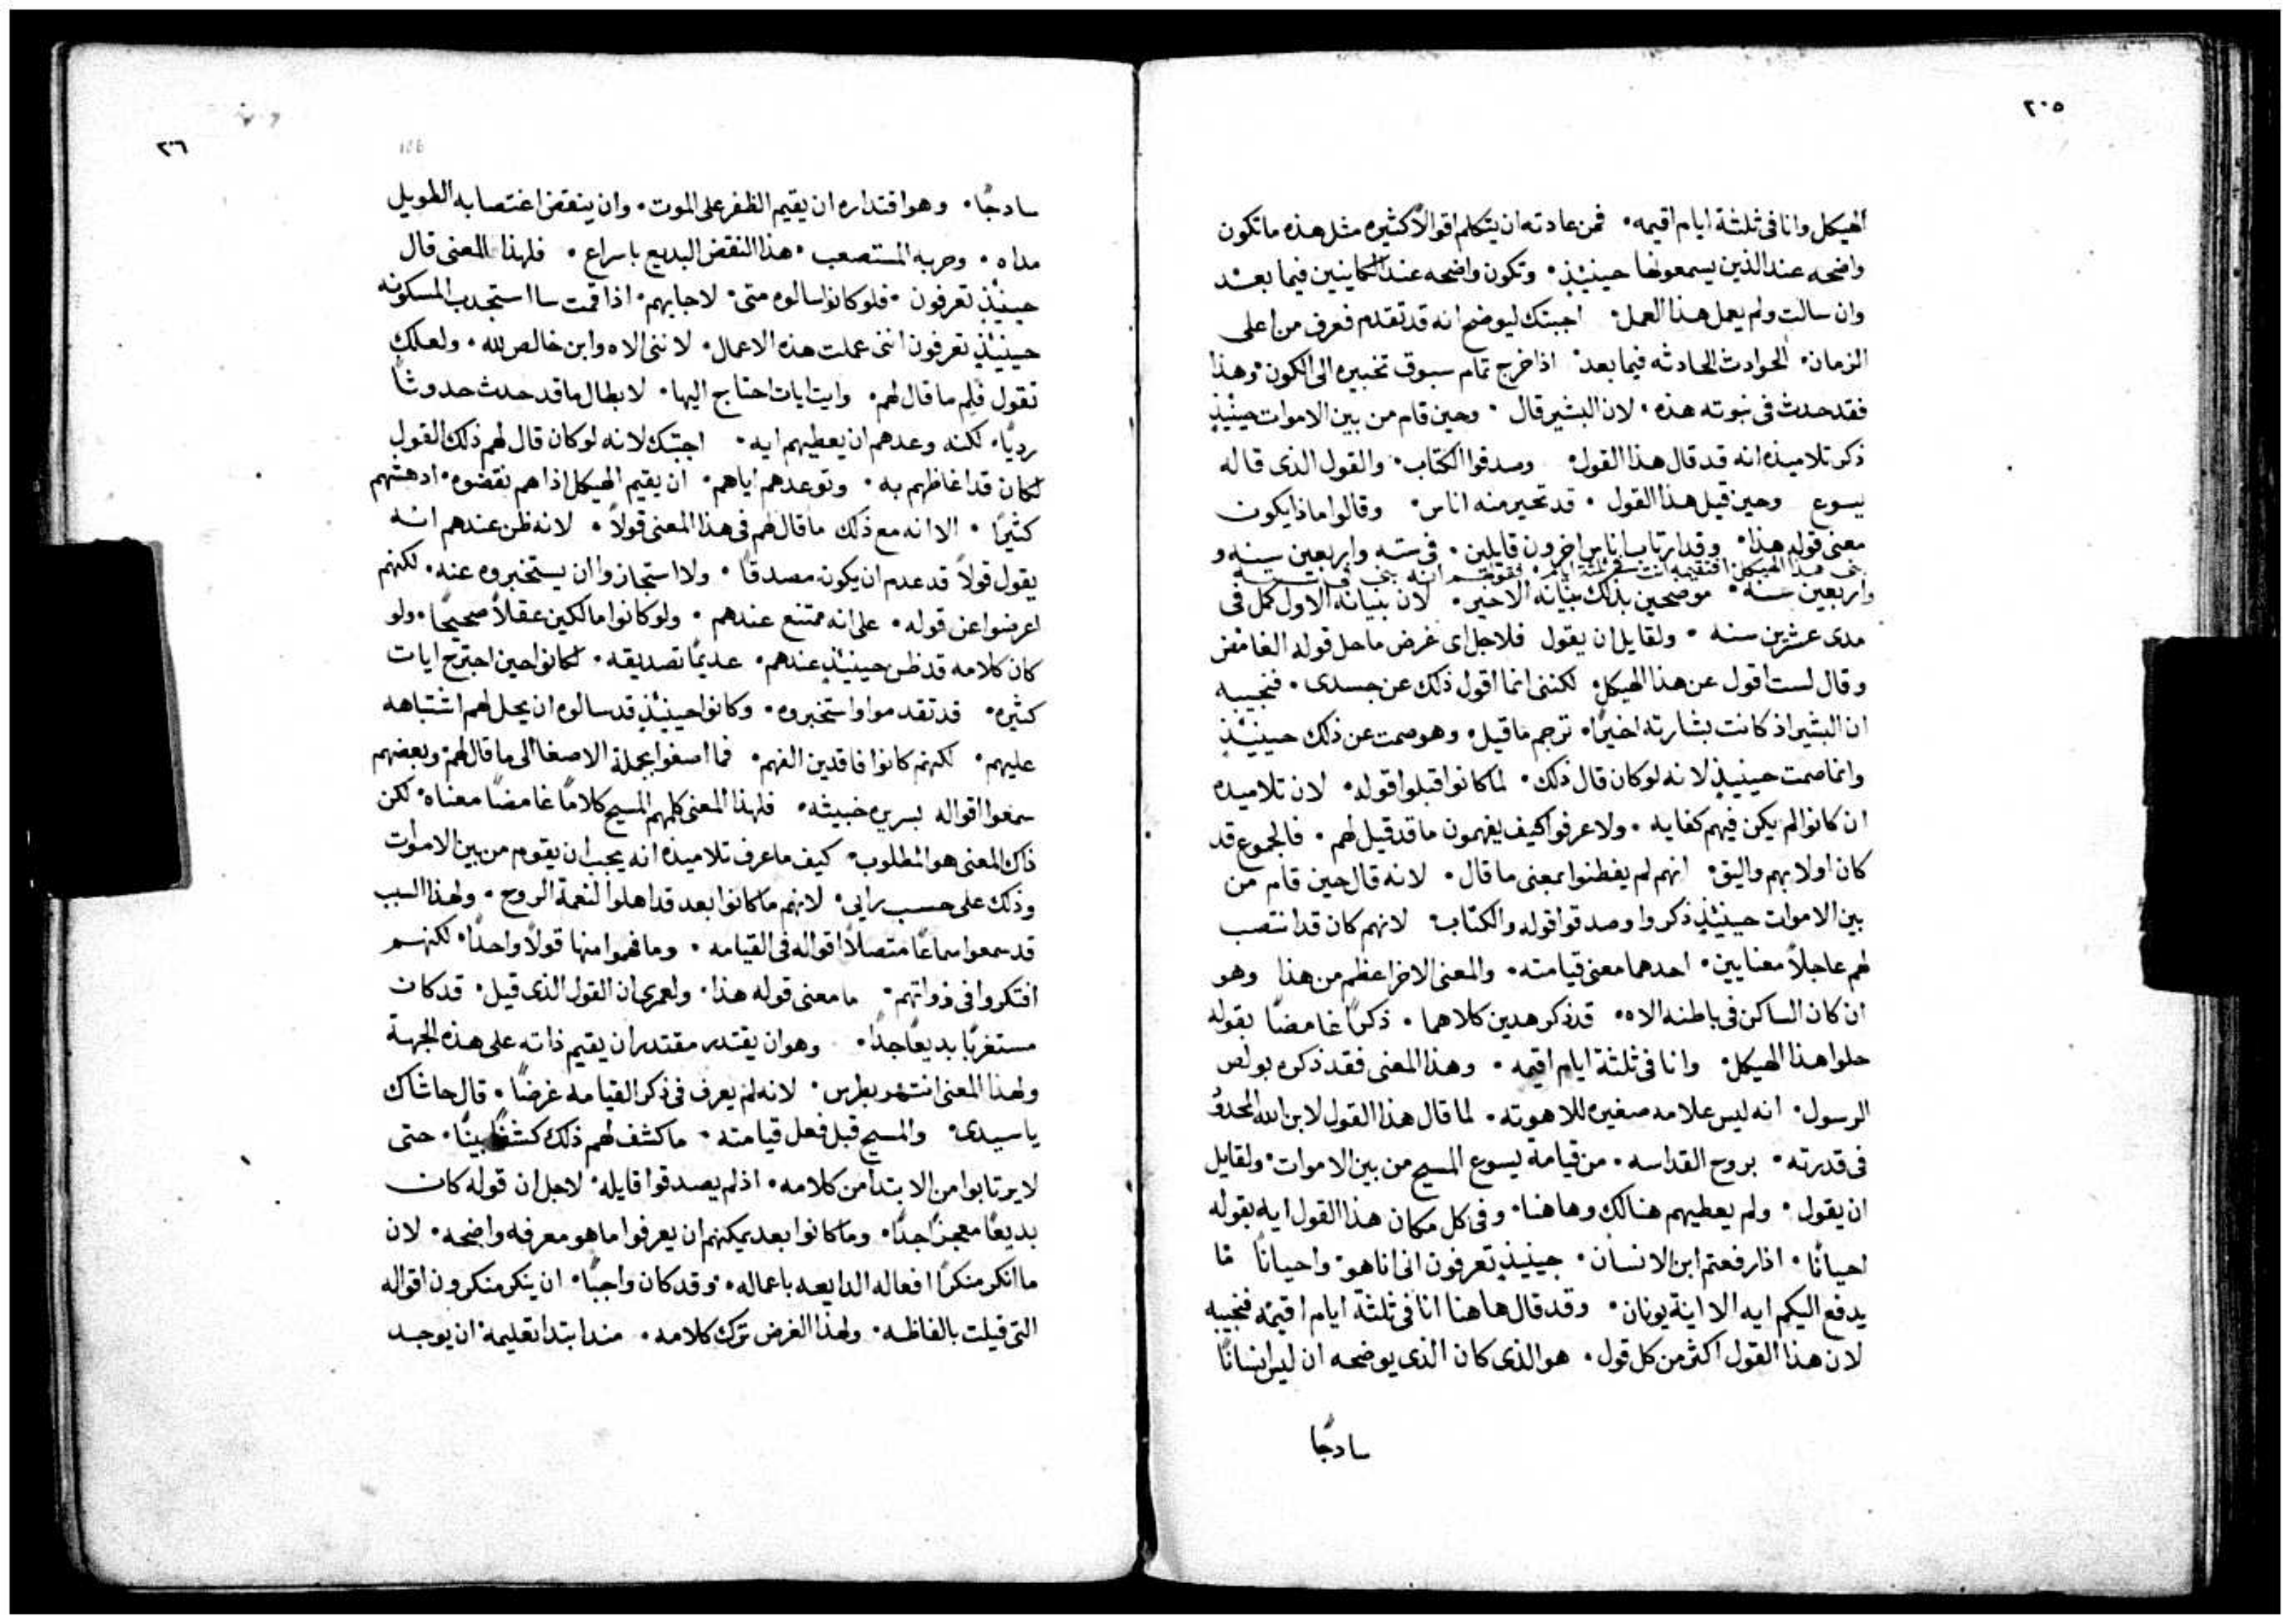 ٢٠٥
الهيكل وانا فى ثلثة ايام اقيمه • فمن عادته ان يتكلم اقوالاً كثيره مثل هذه ما تكون
واضحه عند الذين يسمعونها حينيذٍ • وتكون واضحه عند الكاينين فيما بعد
وان سالت ولم يعمل هذا العمل • اجبتك ليوضح انه قد تقدم فعرف من اعلى
الزمان • الحوادث الحادثه فيما بعد • اذا خرج تمام سبوق تخبيره الى الكون • وهذا
فقد حدث فى نبوته هذه • لان البشير قال • وحين قام من بين الاموات حينيذٍ
ذكر تلاميذه انه قد قال هذا القول • وصدقوا الكتاب • والقول الذى قاله
يسوع وحين قيل هذا القول • قد تحير منه اناس • وقالوا ماذا يكون
معنى قوله هذا • وقد ارتاب اناس اخرون قايلين • فى سته واربعين سنه و
بنى هذا الهيكل افتقيمه انت فى ثلثة ايام • فقولهم انه بنى فى سته
واربعين سنه • موضحين بذلك بنيانه الاخير • لان بنيانه الاول كمل فى
مدى عشرين سنه • ولقايل ان يقول فلاجل اى غرض ما حل قوله الغامض
وقال لست اقول عن هذا الهيكل • لكننى انما اقول ذلك عن جسدى • فنجيبه
ان البشير اذ كانت بشارته اخيرًا • ترجم ما قيل • وهو صمت عن ذلك حينيذٍ
وانما صمت حينيذٍ لانه لو كان قال ذلك • لما كانوا قبلوا قوله • لان تلاميذه
ان كانوا لم يكن فيهم كفايه • ولا عرفوا كيف يفهمون ما قد قيل لهم • فالجموع قد
كان اولا بهم واليق • انهم لم يفطنوا بمعنى ما قال • لانه قال حين قام من
بين الاموات حينيذٍ ذكروا وصدقوا قوله والكتاب • لانهم كان قد انتصب
لهم عاجلاً معنايين • احدهما معنى قيامته • والمعنى الاخر اعظم من هذا وهو
ان كان الساكن فى باطنه الاه • قد ذكر هدين كلاهما • ذكرًا غامضًا بقوله
حلوا هذا الهيكل • وانا فى ثلثة ايام اقيمه • وهذا المعنى فقد ذكره بولص
الرسول • انه ليس علامه صغيره للاهوته • لما قال هذا القول لابن الله المحدود
فى قدرته • بروح القداسه • من قيامة يسوع المسيح من بين الاموات • ولقايل
ان يقول • ولم يعطيهم هنالك وهاهنا • وفى كل مكان هذا القول ايه بقوله
احيانًا • اذا رفعتم ابن الانسان • حينيذٍ تعرفون انى انا هو • واحيانًا ما
يدفع اليكم ايه الا اية يونان • وقد قال هاهنا انا فى ثلثة ايام اقيمه فنجيبه
لان هذا القول اكثر من كل قول • هو الذى كان الذى يوضحه ان ليس انسانًا
سادجًا
٢٠٦
106
سادجًا • وهو اقتداره ان يقيم الظفر على الموت • وان ينقض اغتصابه الطويل
مداه • وحربه المستصعب • هذا النقض البديع باسراع • فلهذا المعنى قال
حينيذٍ تعرفون • فلو كانوا سالوه متى • لاجابهم • اذا قمت سااستجدب المسكونه
حينيذٍ تعرفون اننى عملت هذه الاعمال • لاننى الاه وابن خالص لله • ولعلك
تقول فلم ما قال لهم • وايت ايات احتاج اليها • لابطال ما قد حدث حدوثًا
رديًا • لكنه وعدهم ان يعطيهم ايه • اجبتك لانه لو كان قال لهم ذلك القول
لكان قد اغاظهم به • وتوعدهم اياهم • ان يقيم الهيكل اذا هم نقضوه • ادهشهم
كثيرًا • الا انه مع ذلك ما قال لهم فى هذا المعنى قولاً • لانه ظن عندهم انه
يقول قولاً قد عدم ان يكون مصدقًا • ولا استجازوا ان يستخبروه عنه • لكنهم
اعرضوا عن قوله • على انه ممتنع عندهم • ولو كانوا مالكين عقلاً صحيحًا • ولو
كان كلامه قد ظن حينيذٍ عندهم • عديمًا تصديقه • لكانوا حين اجترح ايات
كثيره • قد تقدموا واستخبروه • وكانوا حينيذٍ قد سالوه ان يحل لهم اشتباهه
عليهم • لكنهم كانوا فاقدين الفهم • فما اصغوا بجملة الاصغا الى ما قال لهم • وبعضهم
سمعوا اقواله بسريره خبيثه • فلهذا المعنى كلمهم المسيح كلامًا غامضًا معناه • لكن
ذاك المعنى هو المطلوب • كيف ما عرف تلاميذه انه يجب ان يقوم من بين الاموات
وذلك على حسب رايى • لانهم ما كانوا بعد قد اهلوا لنعمة الروح • ولهذا السبب
قد سمعوا سماعًا متصلاً اقواله فى القيامه • وما فهموا منها قولاً واحدًا • لكنهم
افتكروا فى ذواتهم • ما معنى قوله هذا • ولعمرى ان القول الذى قيل • قد كان
مستغربًا بديعًا جدًا • وهو ان يقتدر مقتدر ان يقيم ذاته على هذه الجهة
ولهذا المعنى انتهر بطرس • لانه لم يعرف فى ذكر القيامه غرضًا • قال حاشاك
يا سيدى • والمسيح قبل فعل قيامته • ما كشف لهم ذلك كشفًا بينًا • حتى
لا يرتابوا من الابتدا من كلامه • اذ لم يصدقوا قايله • لاجل ان قوله كان
بديعًا معجزًا جدًا • وما كانوا بعد يمكنهم ان يعرفوا ما هو معرفه واضحه • لان
ما انكر منكرًا افعاله الدايعه باعماله • وقد كان واجبًا • ان ينكر منكرون اقواله
التى قيلت بالفاظه • ولهذا الغرض ترك كلامه • مند ابتدا تعليمه • ان يوجد